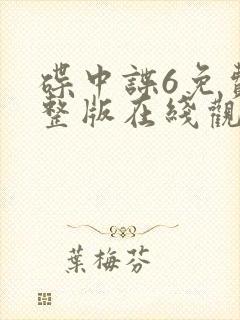 碟中諜6免費
整版在綫觀
葉梅芬